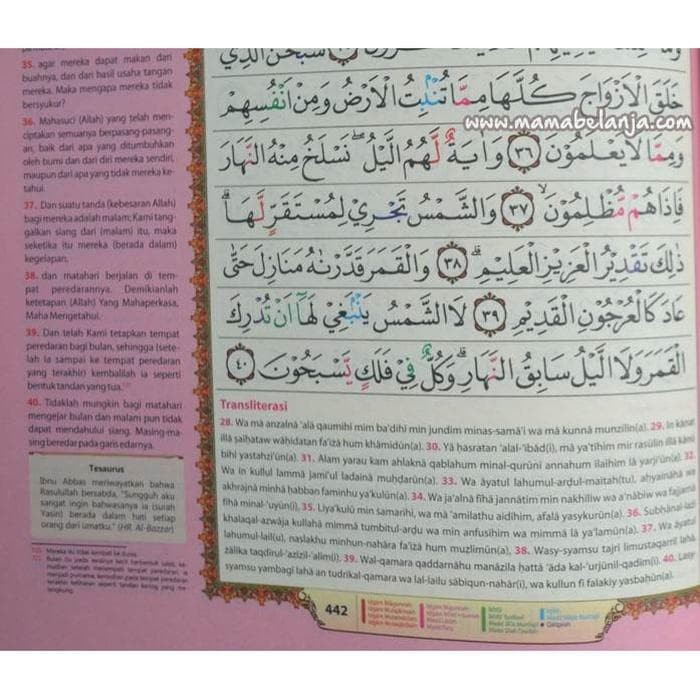 35. agar mereka dapat makan dari
buahnya, dan dari hasil usaha tangan
mereka. Maka mengapa mereka tidak
bersyukur?
36. Mahasuci (Allah) yang telah men-
ciptakan semuanya berpasang-pasang-
an, baik dari apa yang ditumbuhkan
oleh bumi dan dari diri mereka sendiri,
maupun dari apa yang tidak mereka ke-
tahui.
37. Dan suatu tanda (kebesaran Allah)
bagi mereka adalah malam; Kami tang-
galkan siang dari (malam) itu, maka
seketika itu mereka (berada dalam)
kegelapan.
38. dan matahari berjalan di tem-
pat peredarannya. Demikianlah
ketetapan (Allah) Yang Mahaperkasa,
Maha Mengetahui.
39. Dan telah Kami tetapkan tempat
peredaran bagi bulan, sehingga (sete-
lah ia sampai ke tempat peredaran
yang terakhir) kembalilah ia seperti
bentuk tandan yang tua.
40. Tidaklah mungkin bagi matahari
mengejar bulan dan malam pun tidak
dapat mendahului siang. Masing-ma-
sing beredar pada garis edarnya.
Tesaurus
Ibnu Abbas meriwayatkan bahwa
Rasulullah bersabda, "Sungguh aku
sangat ingin bahwasanya ia (surah
Yasin) berada dalam hati setiap
orang dari umatku." (HR Al-Bazzar)
خَلَقَ الْاَزْوَاجَ كُلَّهَا مِمَّا تُنْۢبِتُ الْاَرْضُ وَمِنْ اَنْفُسِهِمْ
www.mamabelanja.com
وَمِمَّا لَا يَعْلَمُوْنَ ٣٦ وَاٰيَةٌ لَّهُمُ الَّيْلُ ۖنَسْلَخُ مِنْهُ النَّهَارَ
فَاِذَا هُمْ مُّظْلِمُوْنَۙ ٣٧ وَالشَّمْسُ تَجْرِيْ لِمُسْتَقَرٍّ لَّهَاۗ
ذٰلِكَ تَقْدِيْرُ الْعَزِيْزِ الْعَلِيْمِۗ ٣٨ وَالْقَمَرَ قَدَّرْنٰهُ مَنَازِلَ حَتّٰى
عَادَ كَالْعُرْجُوْنِ الْقَدِيْمِ ٣٩ لَا الشَّمْسُ يَنْۢبَغِيْ لَهَآ اَنْ تُدْرِكَ
الْقَمَرَ وَلَا الَّيْلُ سَابِقُ النَّهَارِۗ وَكُلٌّ فِيْ فَلَكٍ يَّسْبَحُوْنَ ٤٠
Transliterasi
28. Wa mā anzalnā 'alā qaumihī mim ba'dihī min jundim minas-samā'i wa mā kunnā munzilīn(a). 29. In kānat
illā ṣaiḥataw wāḥidatan fa'iżā hum khāmidūn(a). 30. Yā ḥasratan 'alal-'ibād(i), mā ya'tīhim mir rasūlin illā kānū
bihī yastahzi'ūn(a). 31. Alam yarau kam ahlaknā qablahum minal-qurūni annahum ilaihim lā yarji'ūn(a). 32.
Wa in kullul lammā jamī'ul ladainā muḥḍarūn(a). 33. Wa āyatul lahumul-arḍul-maitah(tu), aḥyaināhā wa
akhrajnā minhā ḥabban faminhu ya'kulūn(a). 34. Wa ja'alnā fīhā jannātim min nakhīliw wa a'nābiw wa fajjarnā
fīhā minal-'uyūn(i). 35. Liya'kulū min ṡamarihī, wa mā 'amilathu aidīhim, afalā yasykurūn(a). 36. Subḥānal-lażī
khalaqal-azwāja kullahā mimmā tumbitul-arḍu wa min anfusihim wa mimmā lā ya'lamūn(a). 37. Wa āyatul
lahumul-lail(u), naslakhu minhun-nahāra fa'iżā hum muẓlimūn(a). 38. Wasy-syamsu tajrī limustaqarril lahā,
żālika taqdīrul-'azīzil-'alīm(i). 39. Wal-qamara qaddarnāhu manāzila ḥattā 'āda kal-'urjūnil-qadīm(i). 40. Lasy-
syamsu yambagī lahā an tudrikal-qamara wa lal-lailu sābiqun-nahār(i), wa kullun fī falakiy yasbaḥūn(a).
442